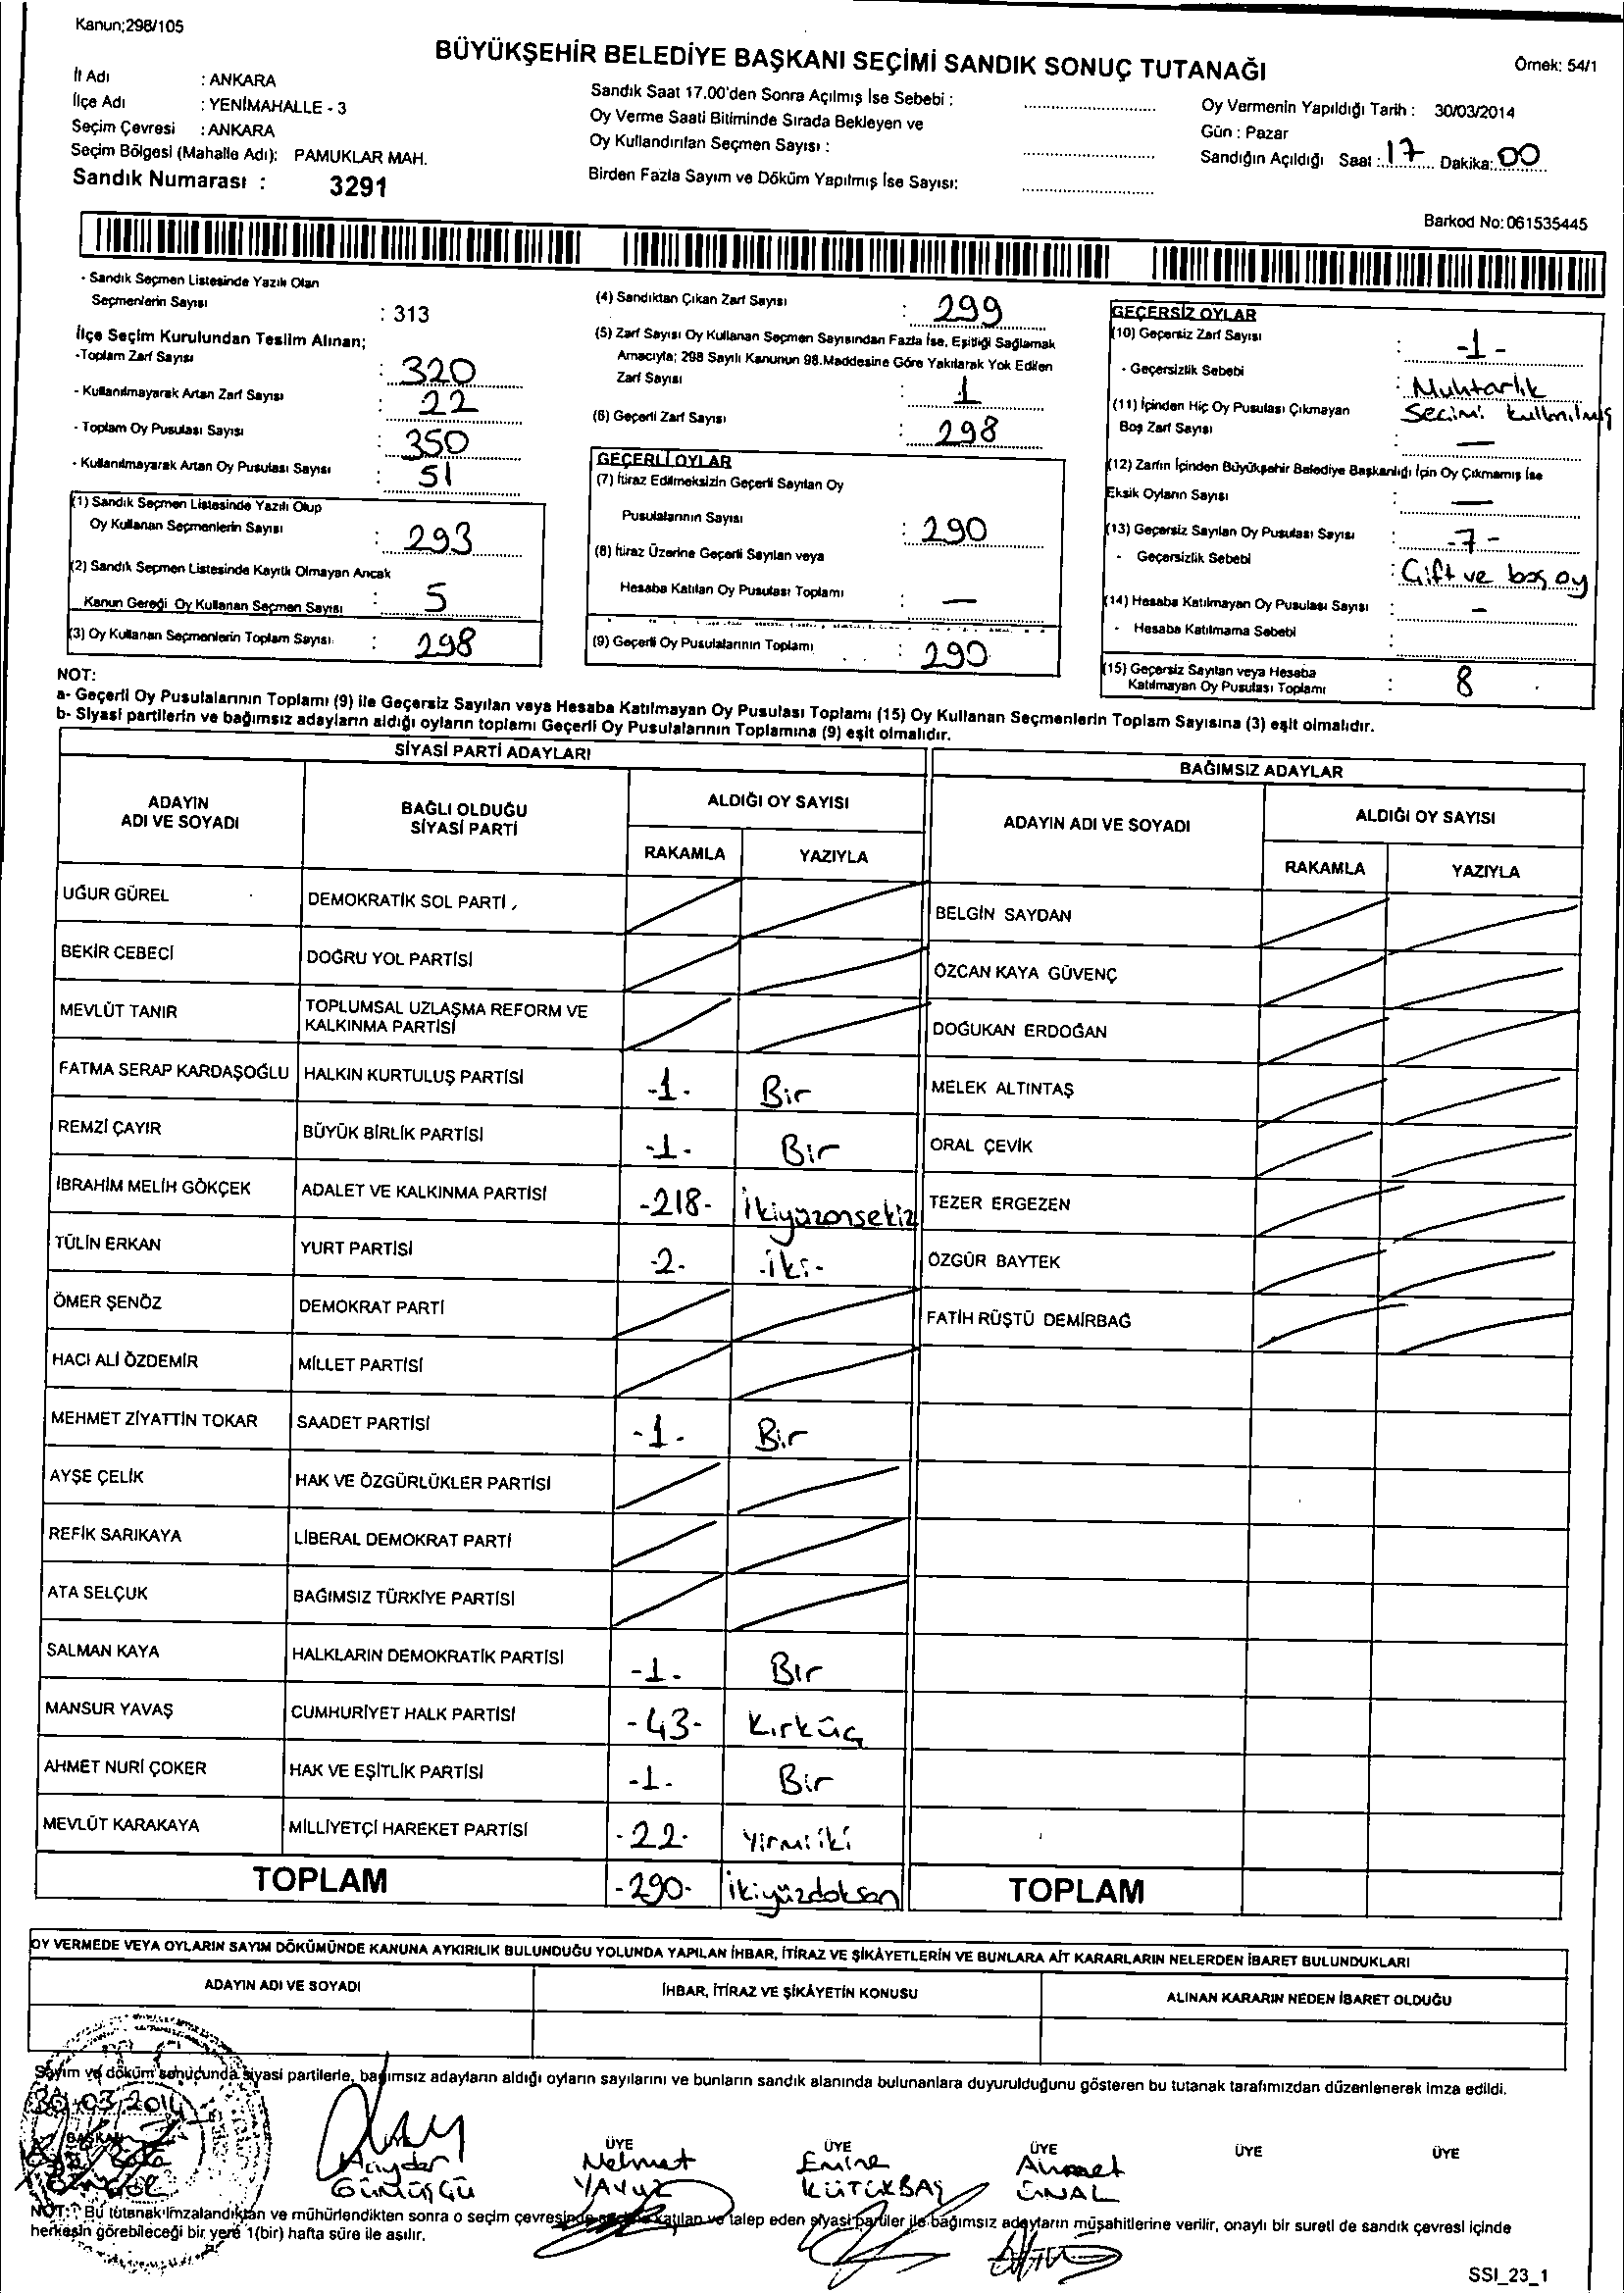 Kanun;298/105
BÜYÜKŞEHİR BELEDİYE BAŞKANI SEÇİMİ SANDIK SONUÇ TUTANAĞI
Örnek: 54/1
İl Adı : ANKARA
İlçe Adı : YENİMAHALLE - 3
Seçim Çevresi : ANKARA
Seçim Bölgesi (Mahalle Adı): PAMUKLAR MAH.
Sandık Numarası : 3291
Sandık Saat 17.00'den Sonra Açılmış İse Sebebi :
Oy Verme Saati Bitiminde Sırada Bekleyen ve
Oy Kullandırılan Seçmen Sayısı :
Birden Fazla Sayım ve Döküm Yapılmış İse Sayısı:
Oy Vermenin Yapıldığı Tarih : 30/03/2014
Gün : Pazar
Sandığın Açıldığı Saat : 17 Dakika: 00
Barkod No: 061535445
- Sandık Seçmen Listesinde Yazılı Olan
Seçmenlerin Sayısı : 313
İlçe Seçim Kurulundan Teslim Alınan;
-Toplam Zarf Sayısı : 320
- Kullanılmayarak Artan Zarf Sayısı : 22
- Toplam Oy Pusulası Sayısı : 350
- Kullanılmayarak Artan Oy Pusulası Sayısı : 51
(1) Sandık Seçmen Listesinde Yazılı Olup
Oy Kullanan Seçmenlerin Sayısı : 293
(2) Sandık Seçmen Listesinde Kayıtlı Olmayan Ancak
Kanun Gereği Oy Kullanan Seçmen Sayısı : 5
(3) Oy Kullanan Seçmenlerin Toplam Sayısı : 298
(4) Sandıktan Çıkan Zarf Sayısı : 299
(5) Zarf Sayısı Oy Kullanan Seçmen Sayısından Fazla İse, Eşitliği Sağlamak
Amacıyla; 298 Sayılı Kanunun 98.Maddesine Göre Yakılarak Yok Edilen
Zarf Sayısı : 1
(6) Geçerli Zarf Sayısı : 298
GEÇERLİ OYLAR
(7) İtiraz Edilmeksizin Geçerli Sayılan Oy
Pusulalarının Sayısı : 290
(8) İtiraz Üzerine Geçerli Sayılan veya
Hesaba Katılan Oy Pusulası Toplamı : —
(9) Geçerli Oy Pusulalarının Toplamı : 290
GEÇERSİZ OYLAR
(10) Geçersiz Zarf Sayısı : -1-
- Geçersizlik Sebebi : Muhtarlık
Seçimi kullanılmış
(11) İçinden Hiç Oy Pusulası Çıkmayan
Boş Zarf Sayısı : —
(12) Zarfın İçinden Büyükşehir Belediye Başkanlığı İçin Oy Çıkmamış İse
Eksik Oyların Sayısı : —
(13) Geçersiz Sayılan Oy Pusulası Sayısı : -7-
- Geçersizlik Sebebi : Çift ve boş oy
(14) Hesaba Katılmayan Oy Pusulası Sayısı : -
- Hesaba Katılmama Sebebi :
(15) Geçersiz Sayılan veya Hesaba
Katılmayan Oy Pusulası Toplamı : 8
NOT:
a- Geçerli Oy Pusulalarının Toplamı (9) ile Geçersiz Sayılan veya Hesaba Katılmayan Oy Pusulası Toplamı (15) Oy Kullanan Seçmenlerin Toplam Sayısına (3) eşit olmalıdır.
b- Siyasi partilerin ve bağımsız adayların aldığı oyların toplamı Geçerli Oy Pusulalarının Toplamına (9) eşit olmalıdır.
SİYASİ PARTİ ADAYLARI
ADAYIN ADI VE SOYADI
BAĞLI OLDUĞU SİYASİ PARTİ
ALDIĞI OY SAYISI
RAKAMLA YAZIYLA
UĞUR GÜREL DEMOKRATİK SOL PARTİ
BEKİR CEBECİ DOĞRU YOL PARTİSİ
MEVLÜT TANIR TOPLUMSAL UZLAŞMA REFORM VE
KALKINMA PARTİSİ
FATMA SERAP KARDAŞOĞLU HALKIN KURTULUŞ PARTİSİ -1- Bir
REMZİ ÇAYIR BÜYÜK BİRLİK PARTİSİ -1- Bir
İBRAHİM MELİH GÖKÇEK ADALET VE KALKINMA PARTİSİ -218- ikiyüzonsekiz
TÜLİN ERKAN YURT PARTİSİ -2- -iki-
ÖMER ŞENÖZ DEMOKRAT PARTİ
HACI ALİ ÖZDEMİR MİLLET PARTİSİ
MEHMET ZİYATTİN TOKAR SAADET PARTİSİ -1- Bir
AYŞE ÇELİK HAK VE ÖZGÜRLÜKLER PARTİSİ
REFİK SARIKAYA LİBERAL DEMOKRAT PARTİ
ATA SELÇUK BAĞIMSIZ TÜRKİYE PARTİSİ
SALMAN KAYA HALKLARIN DEMOKRATİK PARTİSİ -1- Bir
MANSUR YAVAŞ CUMHURİYET HALK PARTİSİ -43- Kırküç
AHMET NURİ ÇOKER HAK VE EŞİTLİK PARTİSİ -1- Bir
MEVLÜT KARAKAYA MİLLİYETÇİ HAREKET PARTİSİ -22- Yirmiiki
TOPLAM -290- ikiyüzdoksan
BAĞIMSIZ ADAYLAR
ADAYIN ADI VE SOYADI
ALDIĞI OY SAYISI
RAKAMLA YAZIYLA
BELGİN SAYDAN
ÖZCAN KAYA GÜVENÇ
DOĞUKAN ERDOĞAN
MELEK ALTINTAŞ
ORAL ÇEVİK
TEZER ERGEZEN
ÖZGÜR BAYTEK
FATİH RÜŞTÜ DEMİRBAĞ
TOPLAM
OY VERMEDE VEYA OYLARIN SAYIM DÖKÜMÜNDE KANUNA AYKIRILIK BULUNDUĞU YOLUNDA YAPILAN İHBAR, İTİRAZ VE ŞİKÂYETLERİN VE BUNLARA AİT KARARLARIN NELERDEN İBARET BULUNDUKLARI
ADAYIN ADI VE SOYADI
İHBAR, İTİRAZ VE ŞİKÂYETİN KONUSU
ALINAN KARARIN NEDEN İBARET OLDUĞU
Sayım ve döküm sonucunda siyasi partilerle, bağımsız adayların aldığı oyların sayılarını ve bunların sandık alanında bulunanlara duyurulduğunu gösteren bu tutanak tarafımızdan düzenlenerek imza edildi.
30.03.2014
BAŞKAN
Haydar
GÜMÜŞÇÜ
ÜYE
Mehmet
YAVUZ
ÜYE
Emine
KÜTÜKBAŞ
ÜYE
Ahmet
ÜNAL
ÜYE
ÜYE
NOT: Bu tutanak imzalandıktan ve mühürlendikten sonra o seçim çevresinde seçime katılan ve talep eden siyasi partiler ile bağımsız adayların müşahitlerine verilir, onaylı bir sureti de sandık çevresi içinde
herkesin görebileceği bir yere 1(bir) hafta süre ile asılır.
SSI_23_1